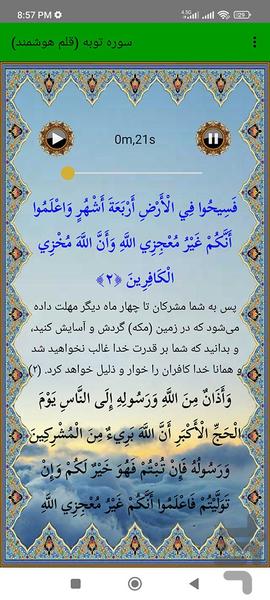 8:57 PM
سوره توبه (قلم هوشمند)
0m,21s
فَسِيحُوا فِي الْأَرْضِ أَرْبَعَةَ أَشْهُرٍ وَاعْلَمُوا
أَنَّكُمْ غَيْرُ مُعْجِزِي اللَّهِ وَأَنَّ اللَّهَ مُخْزِي
الْكَافِرِينَ ﴿٢﴾
پس به شما مشرکان تا چهار ماه دیگر مهلت داده
می‌شود که در زمین (مکه) گردش و آسایش کنید،
و بدانید که شما بر قدرت خدا غالب نخواهید شد
و همانا خدا کافران را خوار و ذلیل خواهد کرد. (۲)
وَأَذَانٌ مِنَ اللَّهِ وَرَسُولِهِ إِلَى النَّاسِ يَوْمَ
الْحَجِّ الْأَكْبَرِ أَنَّ اللَّهَ بَرِيءٌ مِنَ الْمُشْرِكِينَ
وَرَسُولُهُ فَإِنْ تُبْتُمْ فَهُوَ خَيْرٌ لَكُمْ وَإِنْ
تَوَلَّيْتُمْ فَاعْلَمُوا أَنَّكُمْ غَيْرُ مُعْجِزِي اللَّهِ